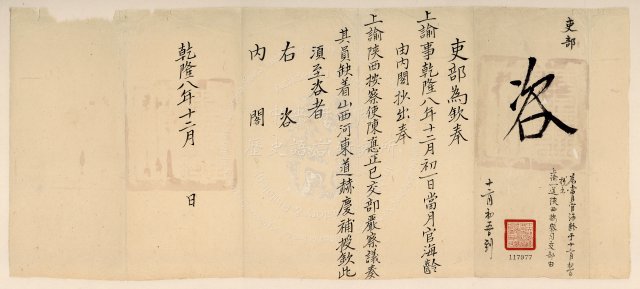 吏部
咨
十二月初五日到
117977
吏部為欽奉
上諭事乾隆八年十二月初一日當月官海齡
由內閣抄出奉
上諭陝西按察使陳悳正已交部嚴察議奏
其員缺着山西河東道赫慶補授欽此
須至咨者
右咨
內閣
乾隆八年十二月　日